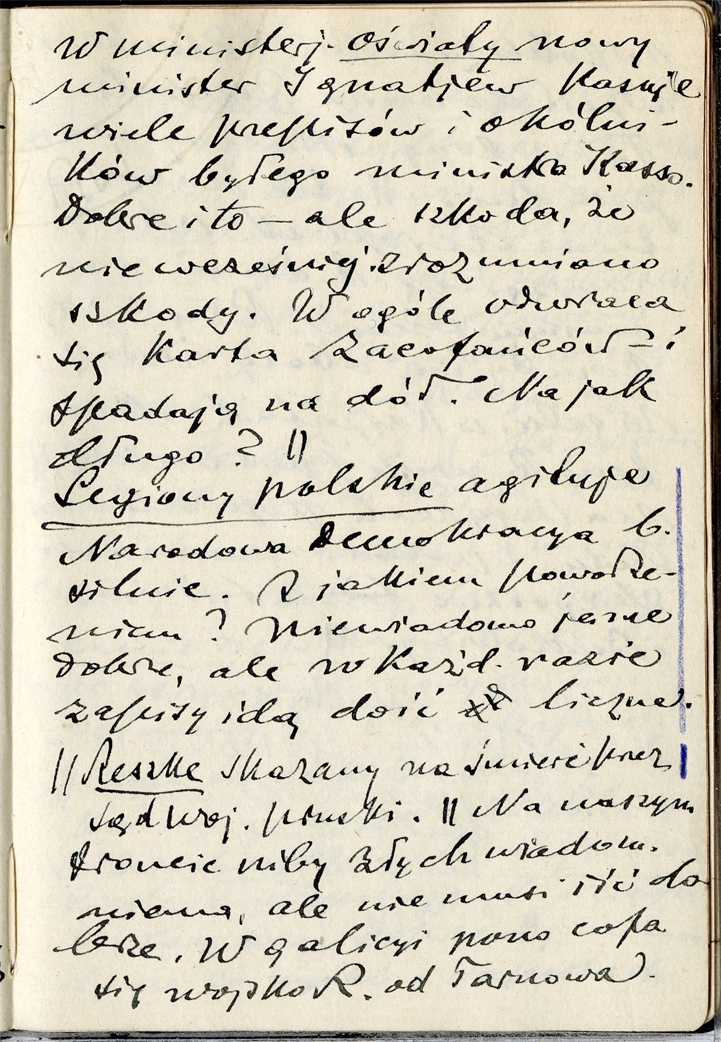 W ministerj. oświaty nowy
minister Ignatjew kasuje
wiele przepisów i okólni-
ków byłego ministra Kasso.
Dobre i to – ale szkoda, że
nie wcześniej zrozumiano
szkody. W ogóle odwraca
się karta zacofańców – i
spadają na dół. Na jak
długo? ||
Legiony polskie agituje
Narodowa Demokracya b.
silnie. Z jakiem powodze-
niem? Niewiadomo jeszcze
dobrze, ale w każd. razie
zapisy idą dość liczne.
|| Reszke skazany na śmierć przez
sąd woj. pruski. || Na naszym
froncie niby złych wiadom.
niema, ale nie musi iść do
brze. W Galicyi pono cofa
się wojsko R. od Tarnowa.